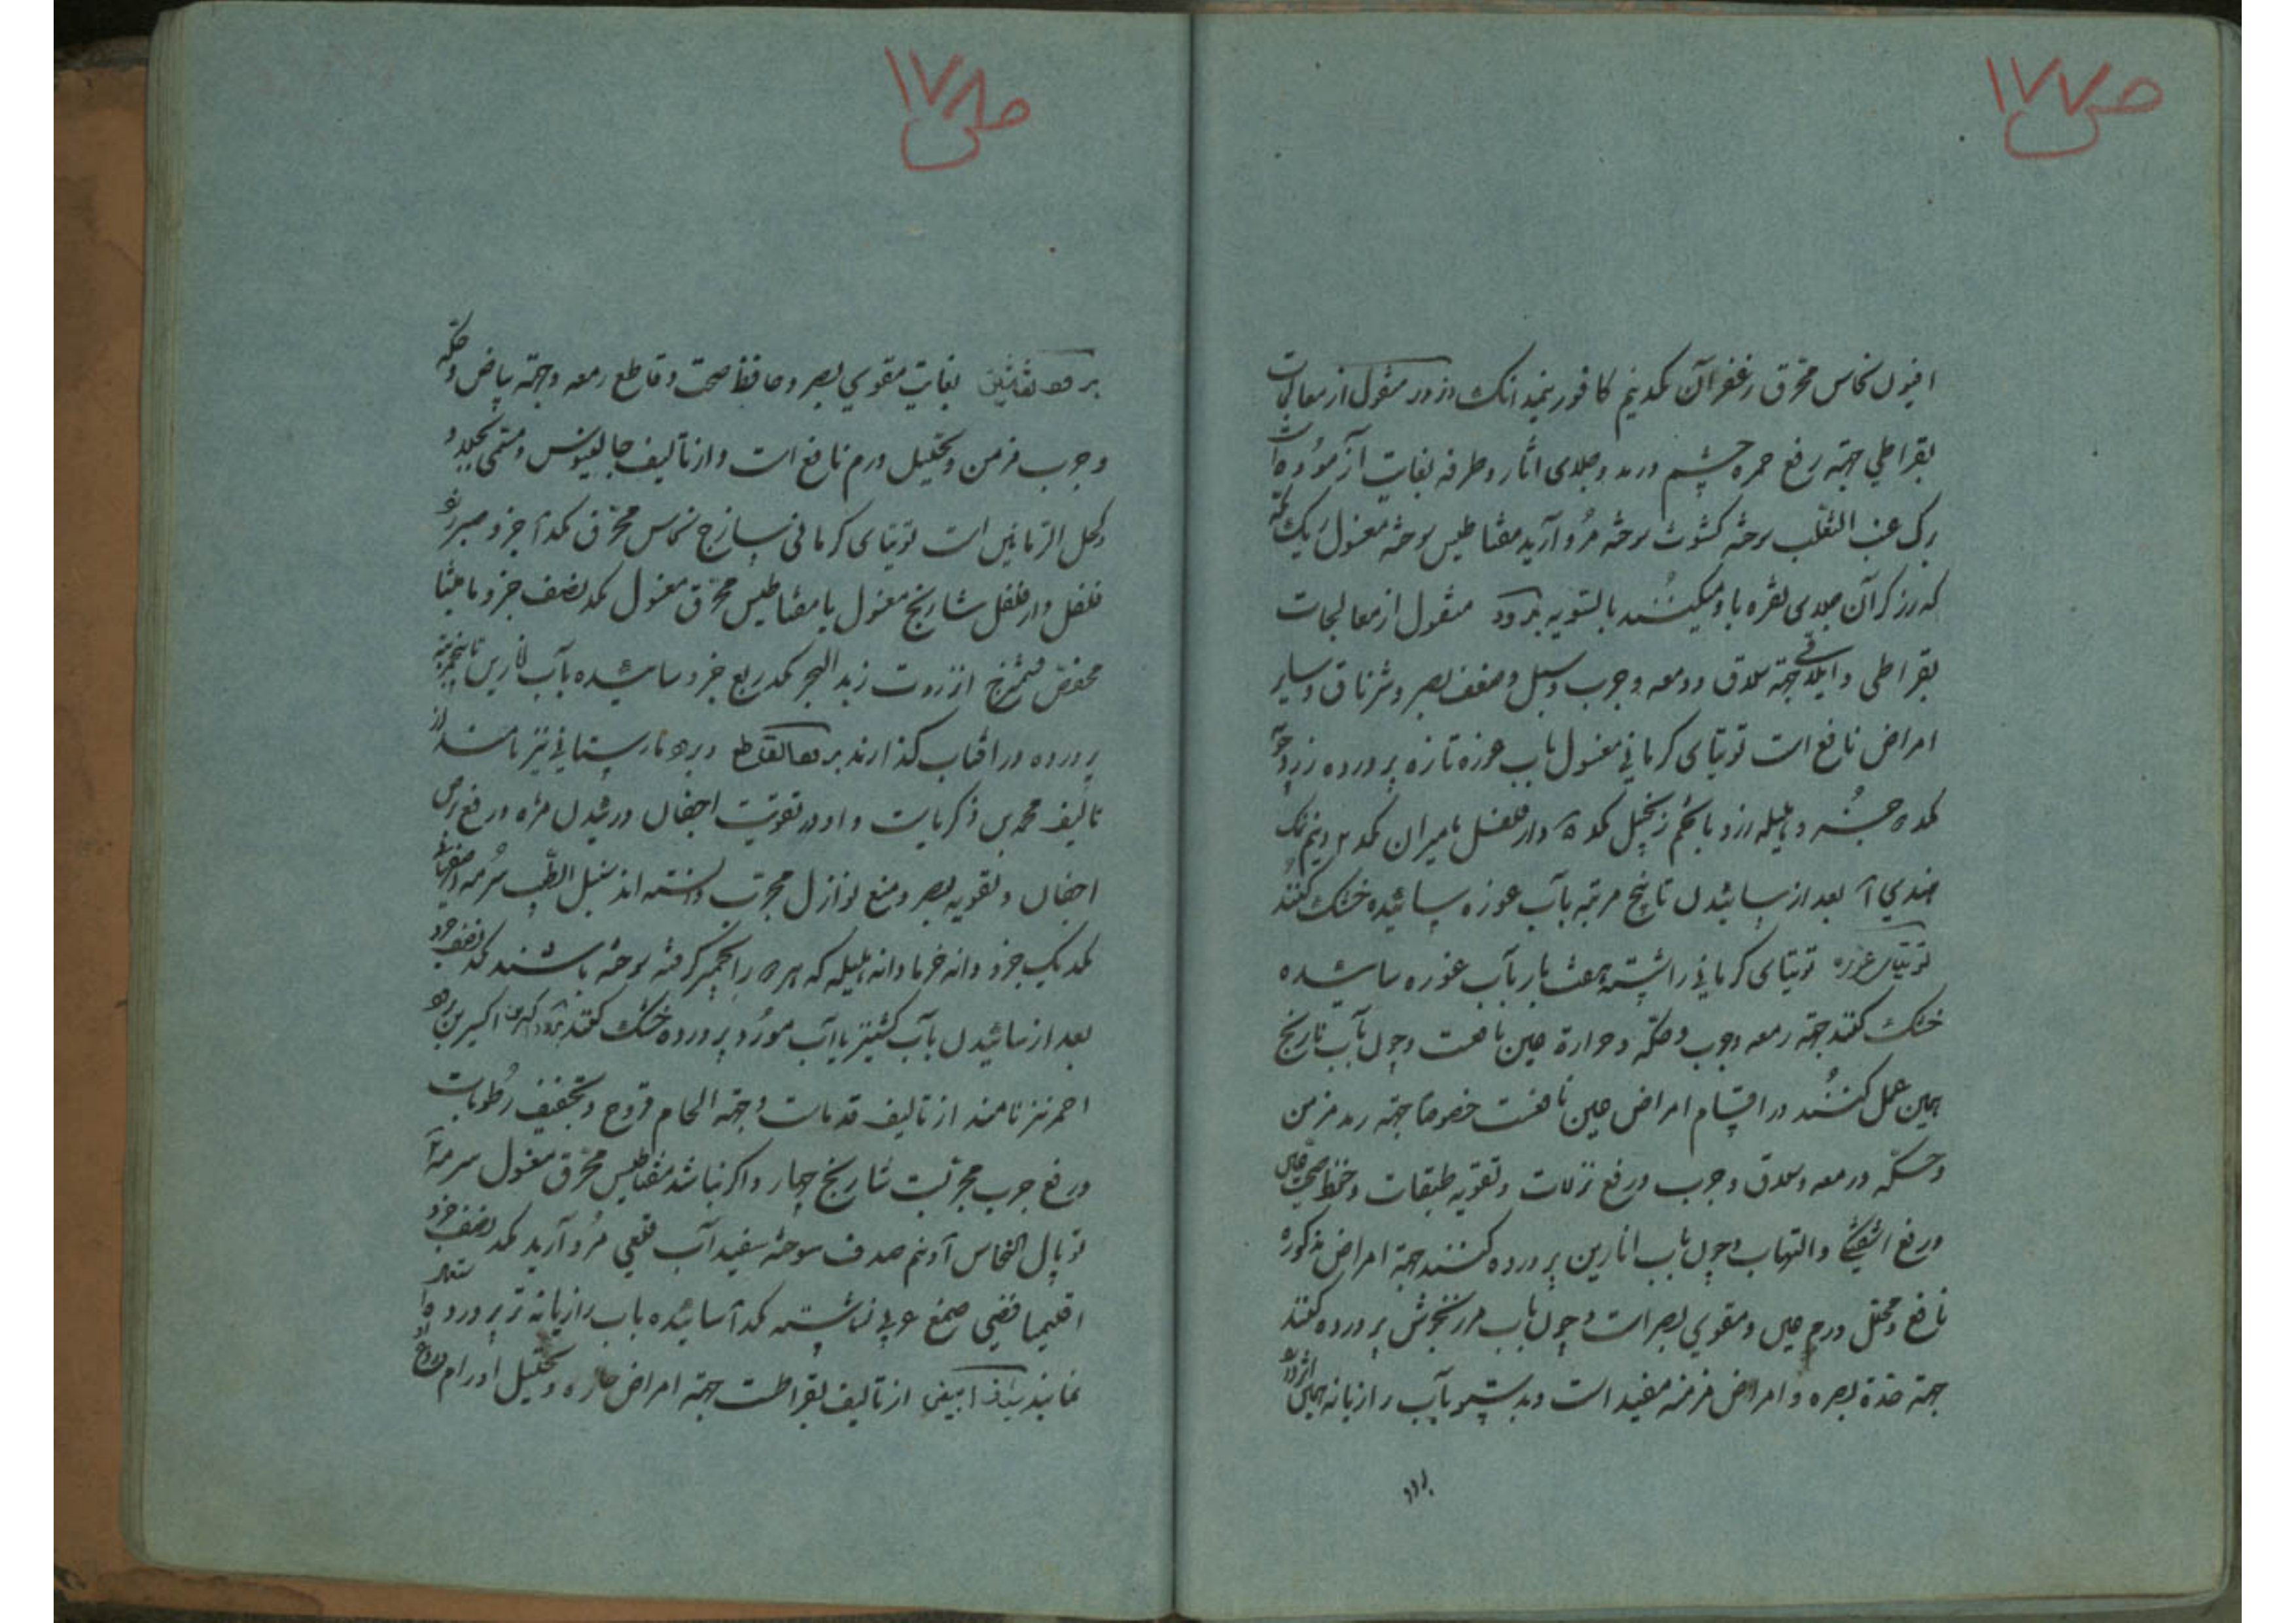 ص ١٧٧
افیون نحاس محرق زعفران آن کمد نیم کافور نیمدانک ذرور منقول از معالجات
بقراطی جهة رفع حمره چشم ورمد وجلای اثار وطرفه بغایت آزموده است
عنب الثعلب سوخته کشوث سوخته مروارید مقناطیس سوخته مغسول
که زرکران جلای نقره باو میکنند بالسویه برود منقول از معالجات
بقراطی وایلاقی جهة سلاق ودمعه وجرب وسبل وضعف بصر وشرناق وسایر
امراض نافع است توتیای کرمانی مغسول بآب غوره تازه پرورده
وهلیله زرد زنجبیل کمد دارفلفل مامیران کمد
هندی آ بعد از سائیدن تا پنج مرتبه بآب غوره سائیده خشک کنند
توتیای غوره توتیای کرمانی را شسته هفت بار بآب غوره سائیده
خشک کنند جهة دمعه وجرب وحکه وحرارة عین نافعست وچون بآب نارنج
همین عمل کنند در اقسام امراض عین نافعست خصوصا جهة رمد مزمن
وحکّه ودمعه وسلاق وجرب ورفع نزلات وتقویه طبقات وحفظ صحة عین
ورفع والتهاب وچون بآب انارین پرورده کنند جهة امراض مذکوره
نافع ومحلل ورم عین ومقوی بصر است وچون بآب مرزنجوش پرورده کنند
جهة حدة بصره وامراض مزمنه مفید است وبدستور بآب رازیانه همین اثر دارد
برود
ص ١٧٨
برود بغایت مقوی بصر وحافظ صحت وقاطع دمعه وجهة بیاض وحکه
وجرب مزمن وتحلیل ورم نافع است واز تألیف جالینوس ومسمی
وکحل الرمانین است توتیای کرمانی سازج نحاس محرق کمد آ جزو صبر زرد
فلفل دارفلفل شادنج مغسول یا مقناطیس محرق مغسول کمد نصف جزو مامیثا
حضض انزروت زبد البحر کمد ربع جزو سائیده بآب نارین تا پنج مرتبه
پرورده در افتاب کذارند برود وبرود نیز نامند از
تألیف محمد بن ذکریاست واو در تقویت اجفان ورفع
اجفان وتقویه بصر ومنع نوازل مجرب دانسته اند سنبل الطیب سرمه
کمد یک جزو دانه خرما دانه هلیله که هر را بخمیر کرفته سوخته باشند کمد نصف جزو
بعد از سائیدن بآب کشنیز یا آب مورد پرورده خشک کنند برود
احمر نیز نامند از تألیف قدماست وجهة الحام قروح وتجفیف رطوبات
ورفع جرب مجربست شادنج چهار واکر نباشد مقناطیس محرق مغسول سرمه
توبال النحاس صدف سوخته سفیدآب قلعی مروارید کمد نصف جزو
اقلیمیا فضی صمغ عربی نشاسته کمد آ سائیده بآب رازیانه تر پرورده استعمال
نمایند شیاف ابیض از تألیف بقراطست جهة امراض حاره وتحلیل اورام